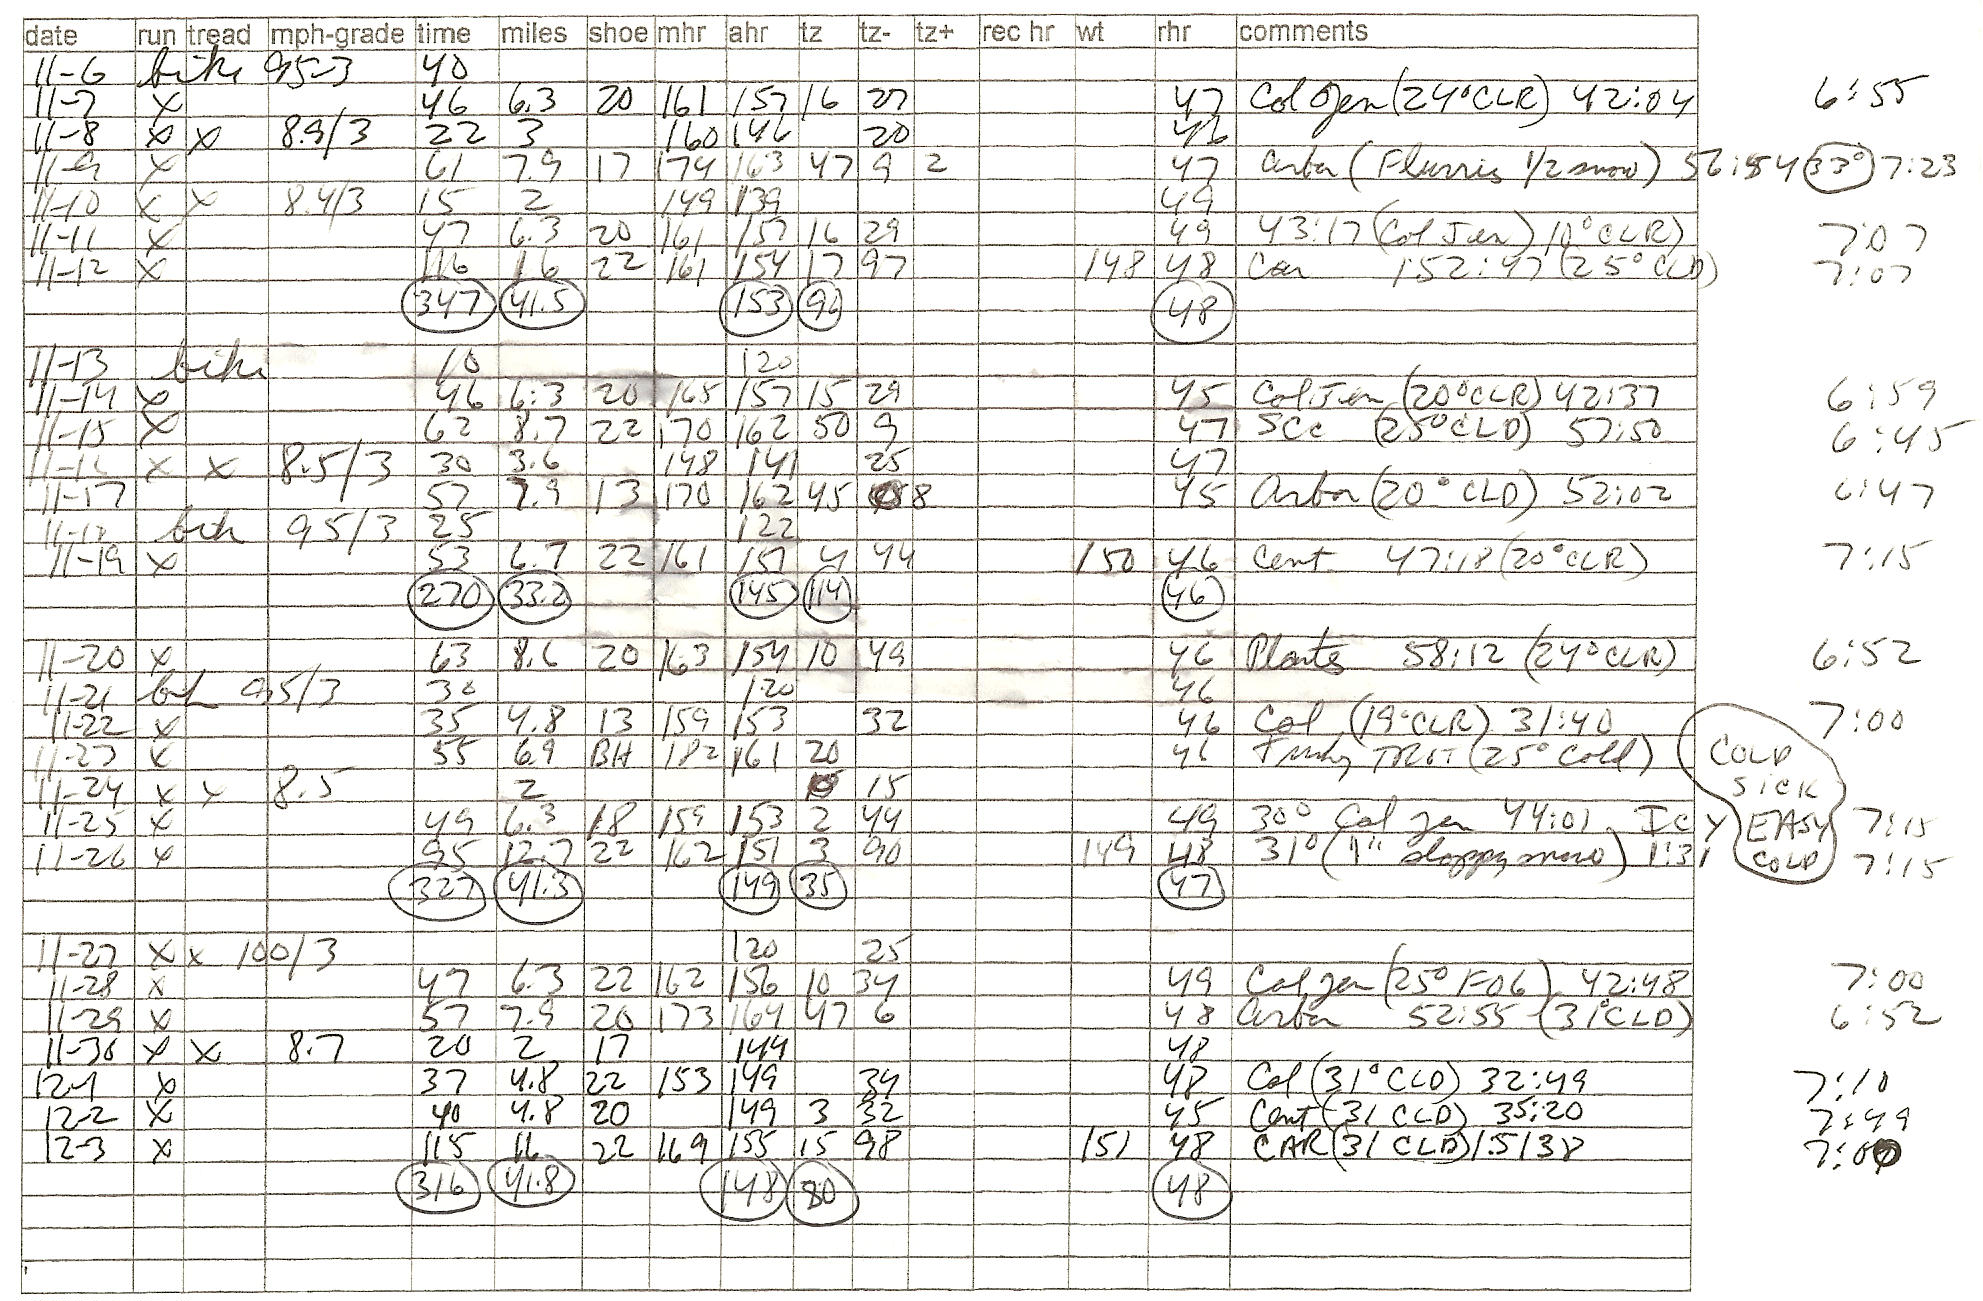 date run tread mph-grade time miles shoe mhr ahr tz tz- tz+ rec hr wt rhr comments
11-6 bike 95-3 40
11-7 x 46 6.3 20 161 157 16 27 47 Col Jen (24° CLR) 42:04 6:55
11-8 x x 8.9/3 22 3 160 146 20 46
11-9 x 61 7.9 17 174 163 47 9 2 47 Arbor (Flurries 1/2 snow) 56:54 33° 7:23
11-10 x x 8.4/3 15 2 149 139 49
11-11 x 47 6.3 20 161 157 16 29 49 43:17 (Col Jen) 10° CLR) 7:07
11-12 x 116 16 22 161 154 17 97 148 48 Car 1:52:47 (25° CLD) 7:07
347 41.5 153 96 48
11-13 bike 10 120
11-14 x 46 6:3 20 165 157 15 29 45 Col Jen (20° CLR) 42:37 6:59
11-15 x 62 8.7 22 170 162 50 9 47 SCC (25° CLD) 57:50 6:45
11-16 x x 8.5/3 30 3.6 148 141 25 47
11-17 57 7.9 13 170 162 45 8 45 Arbor (20° CLD) 52:02 6:47
11-18 bike 95/3 25 122
11-19 x 53 6.7 22 161 157 4 44 150 46 Cent 47:18 (20° CLR) 7:15
270 33.2 145 114 46
11-20 x 63 8.6 20 163 154 10 49 46 Plants 58:12 (24° CLR) 6:52
11-21 bike 95/3 30 120 46
11-22 x 35 4.8 13 159 153 32 46 Col (19° CLR) 31:40 7:00
11-23 x 55 6.9 BH 182 161 20 46 Turkey TROT (25° Cold) COLD
11-24 x x 8.5 2 15 SICK
11-25 x 49 6.3 18 159 153 2 44 49 30° Col Jen 44:01 Icy EASY 7:15
11-26 x 95 12.7 22 162 151 3 90 149 48 31° (1" sloppy snow) 1:31 COLD 7:15
327 41.3 149 35 47
11-27 x x 100/3 120 25
11-28 x 47 6.3 22 162 156 10 34 49 Col Jen (25° FOG) 42:48 7:00
11-29 x 57 7.9 20 173 164 47 6 48 Arbor 52:55 (31° CLD) 6:52
11-30 x x 8.7 20 2 17 144 48
12-1 x 37 4.8 22 153 149 34 48 Col (31° CLD) 32:49 7:10
12-2 x 40 4.8 20 149 3 32 45 Cent (31 CLD) 35:20 7:49
12-3 x 115 16 22 169 155 15 98 151 48 CAR (31 CLD) 1:5138
316 41.8 148 80 48